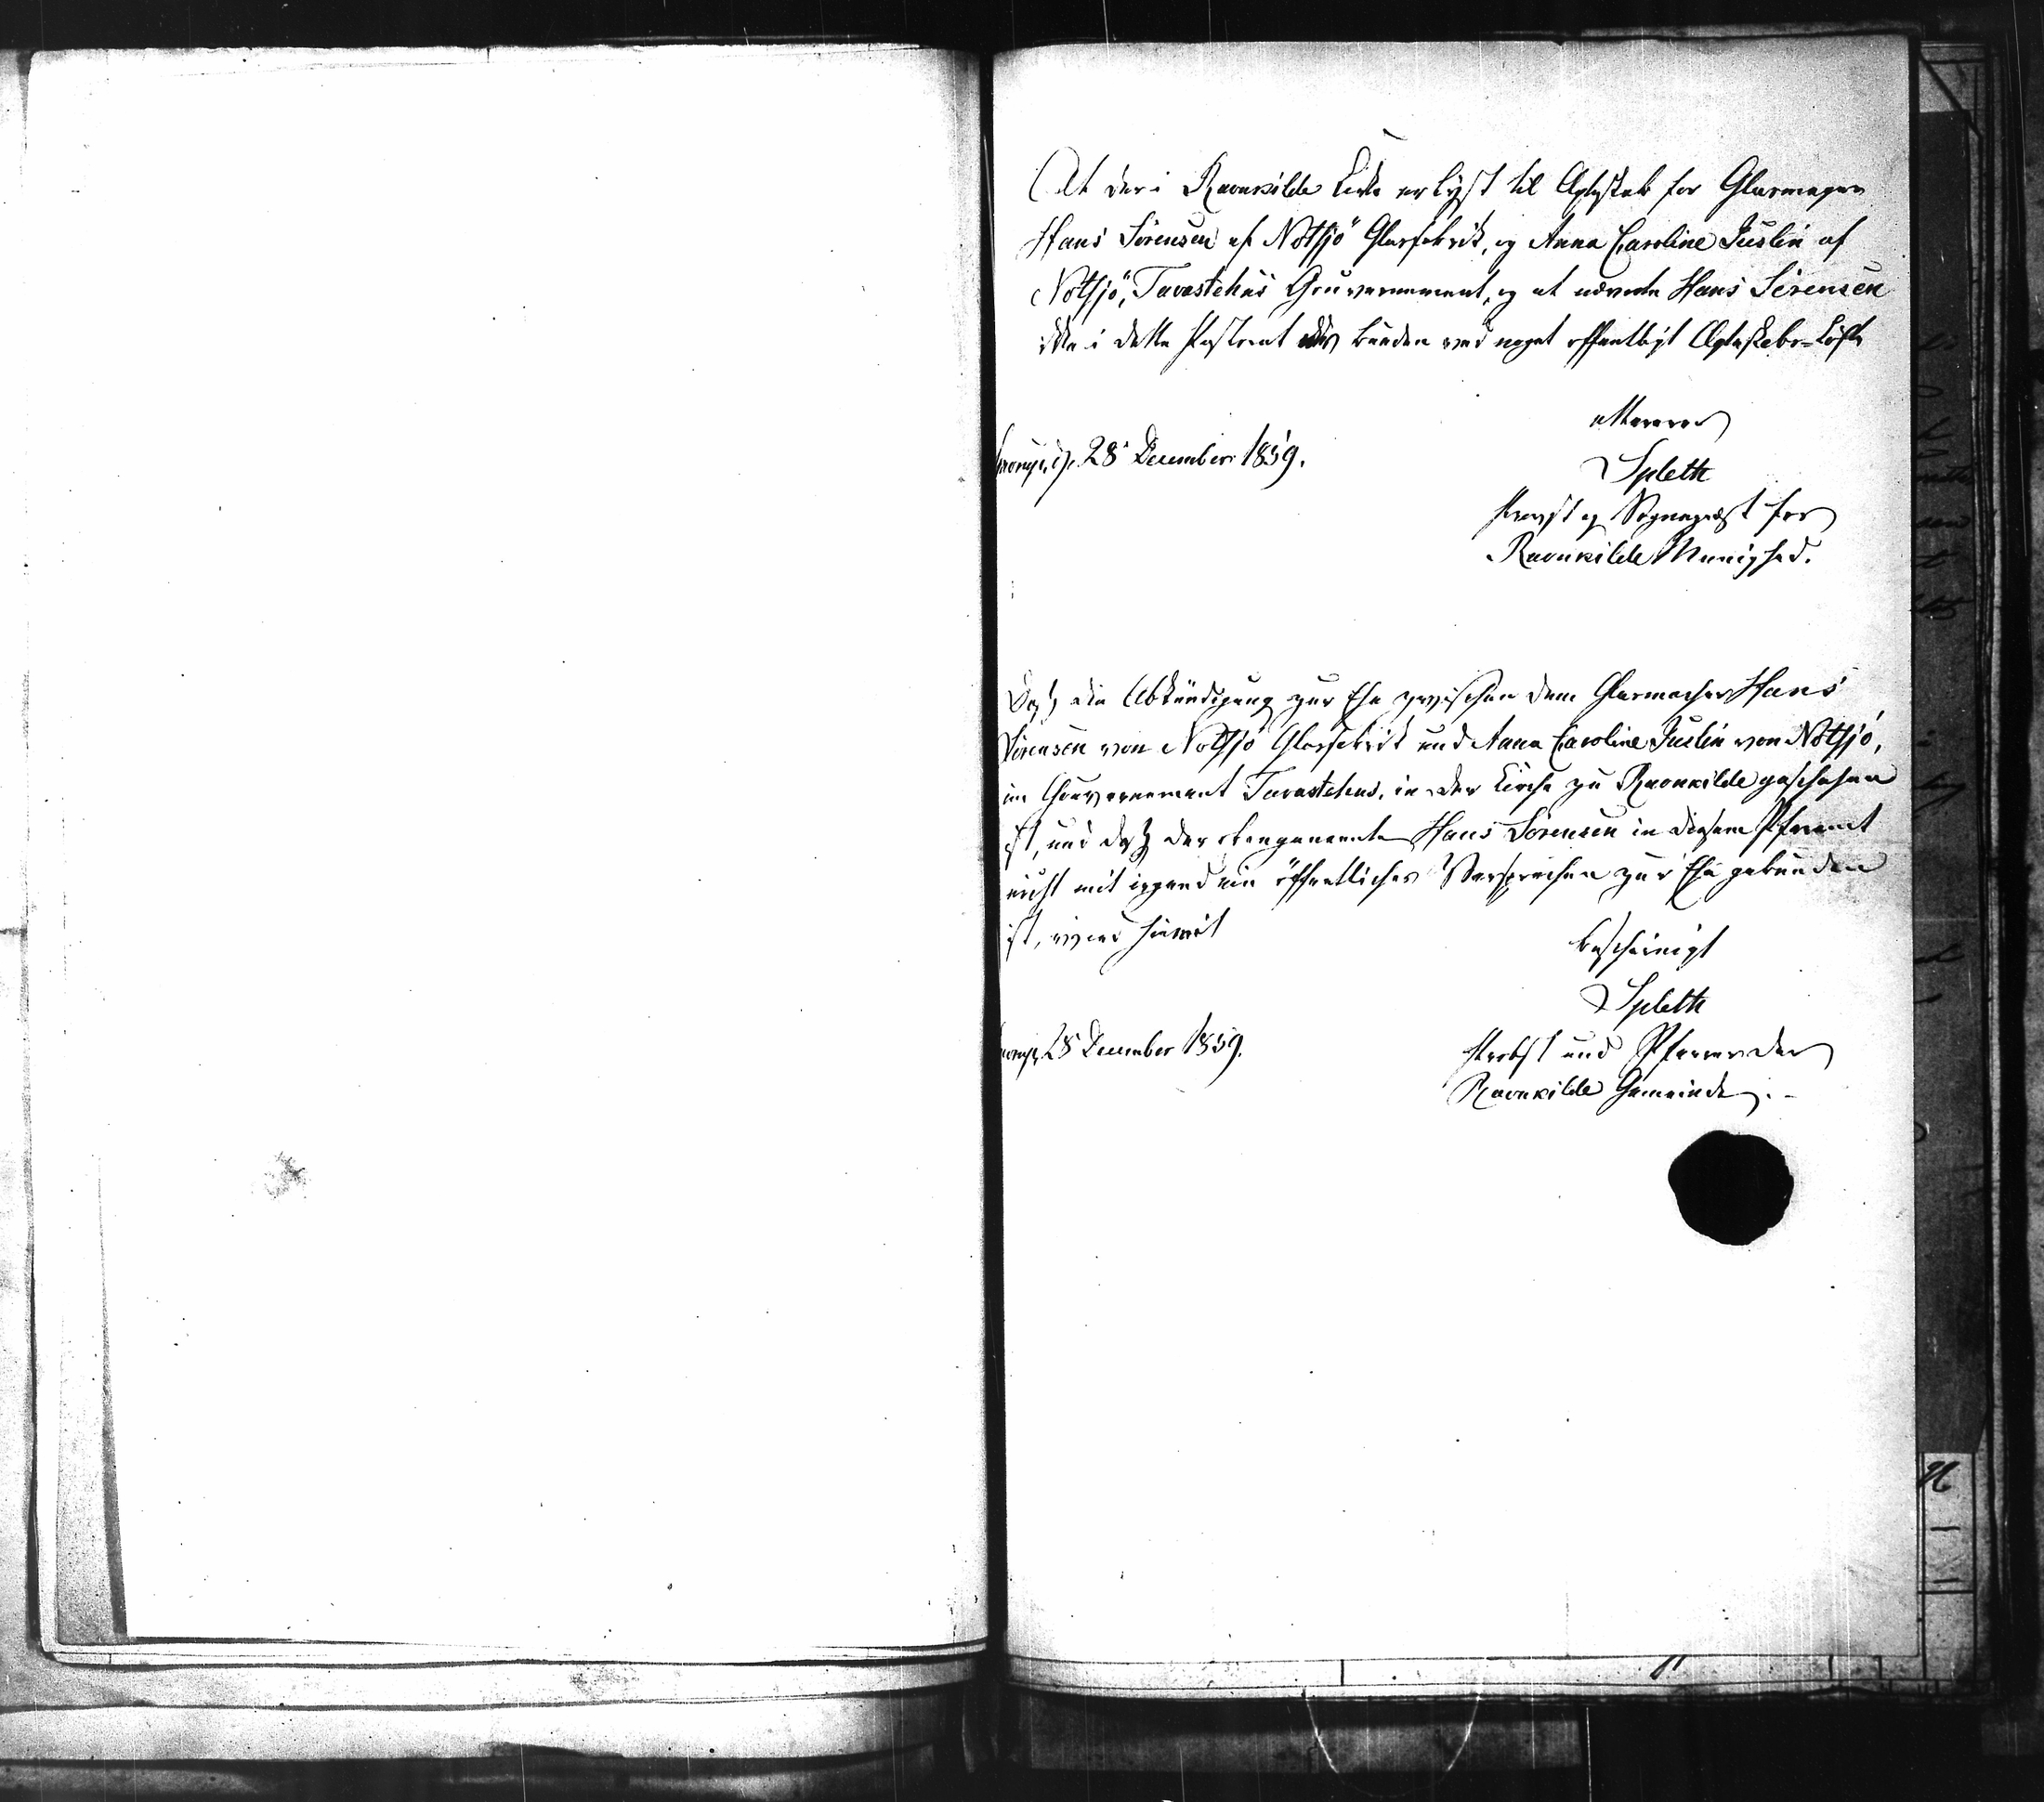 At der i Ravnkilde Kirke er lyst til Ægteskab for Glasmager
Hans Sörensen af Notsjö Glasfabrik, og Anna Caroline Juslin af
Notsjö, Tavastehus Gouvernement, og at nævnte Hans Sörensen
ikke i dette Pastorat er bunden ved noget offentligt Ægteskabs-Løfte
attesteres
28 December 1859.
Spleth
Provst og Sognepræst for
Ravnkilde Menighed.
Daß die Abkündigung zur Ehe zwischen dem Glasmacher Hans
Sörensen von Notsjö Glasfabrik und Anna Caroline Juslin von Notsjö,
im Gouvernement Tavastehus, in der Kirche zu Ravnkilde geschehen
ist, und daß der obengenannte Hans Sörensen in diesem Pfarramt
nicht mit irgend ein öffentliches Versprechen zur Ehe gebunden
ist, wird hiemit
bescheinigt
Spleth
28 December 1859.
Probst und Pfarrer der
Ravnkilde Gemeinde.